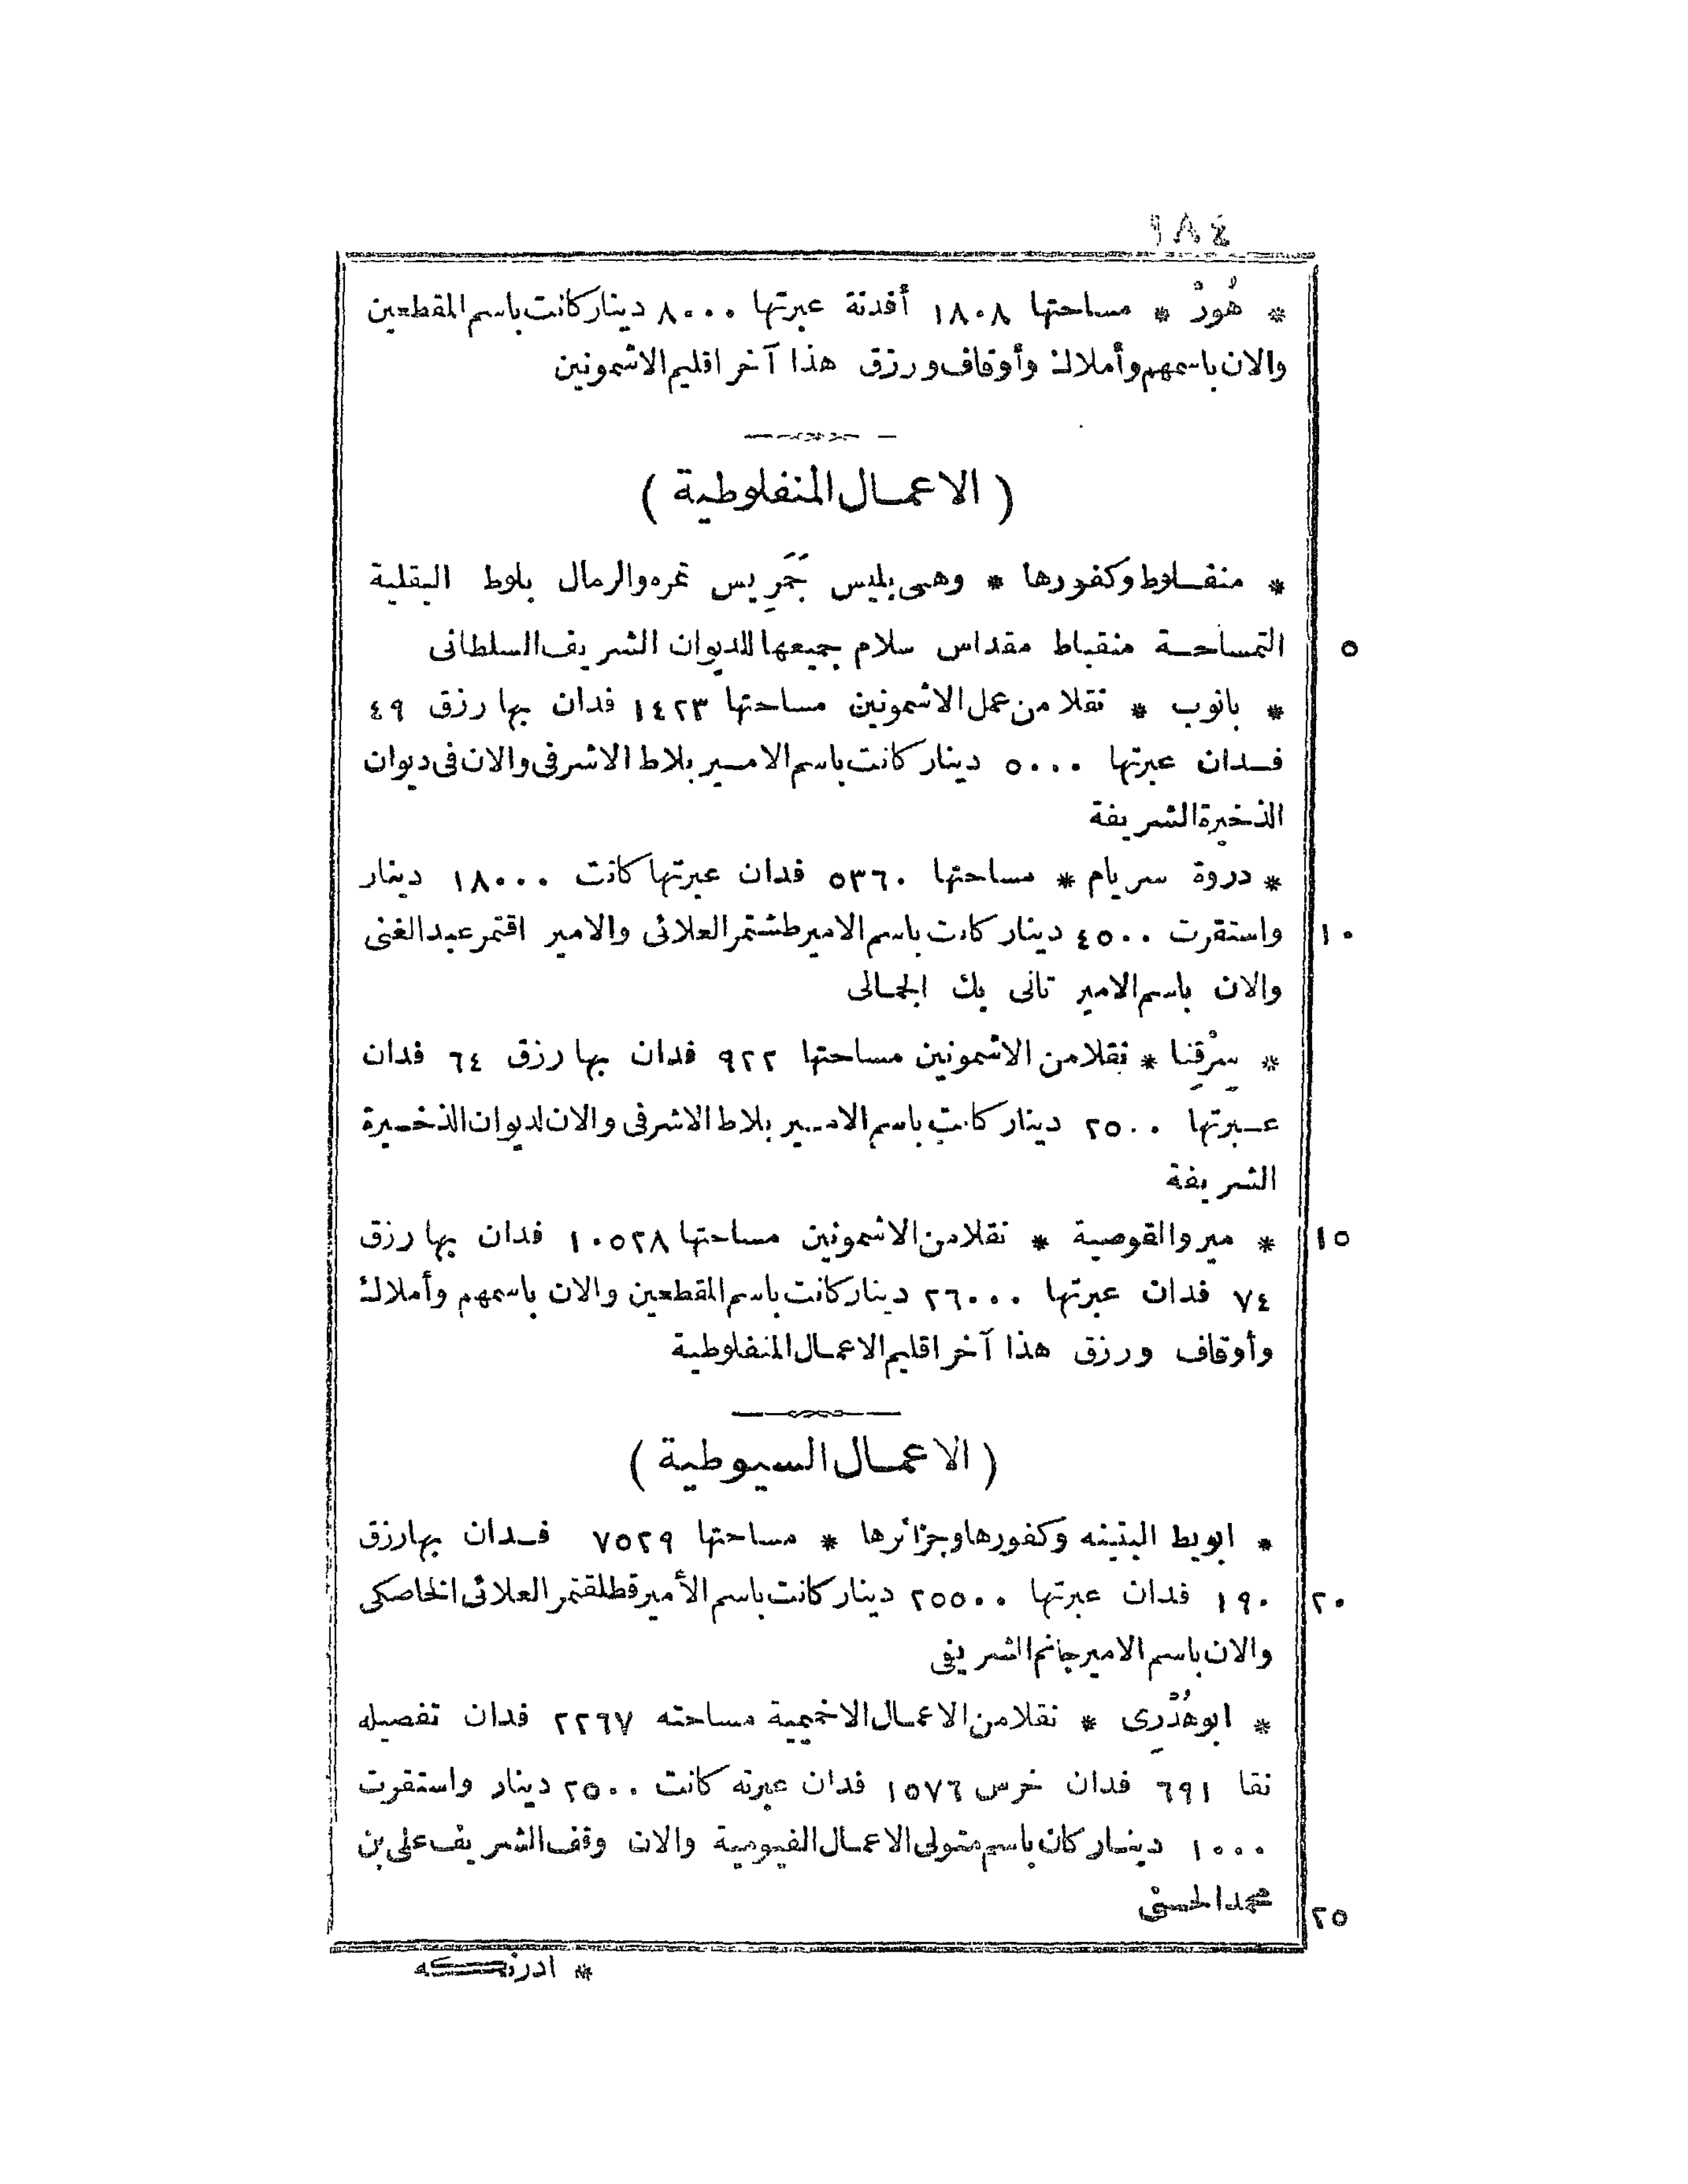 ١٨٤
* هُورْ * مساحتها ١٨٠٨ أفدنة عبرتها ٨٠٠٠ دينار كانت باسم المقطعين
والان باسمهم وأملاك وأوقاف ورزق هذا آخر اقليم الاشمونين
( الاعمال المنفلوطية )
* منفلوط وكفورها * وهى بلميس بَمَرِيس نمره والرمال بلوط البقلية
٥ التمساحة منقباط مقداس سلام جميعها للديوان الشريف السلطانى
* بانوب * نقلا من عمل الاشمونين مساحتها ١٤٢٣ فدان بها رزق ٤٩
فدان عبرتها ٥٠٠٠ دينار كانت باسم الامير بلاط الاشرفى والان فى ديوان
الذخيرة الشريفة
* دروة سريام * مساحتها ٥٣٦٠ فدان عبرتها كانت ١٨٠٠٠ دينار
١٠ واستقرت ٤٥٠٠ دينار كانت باسم الامير طشتمر العلائى والامير اقتمر عبد الغنى
والان باسم الامير تانى بك الجمالى
* سِرْقِنا * نقلا من الاشمونين مساحتها ٩٢٢ فدان بها رزق ٦٤ فدان
عبرتها ٢٥٠٠ دينار كانت باسم الامير بلاط الاشرفى والان لديوان الذخيرة
الشريفة
١٥ * مير والقوصية * نقلا من الاشمونين مساحتها ١٠٥٢٨ فدان بها رزق
٧٤ فدان عبرتها ٢٦٠٠٠ دينار كانت باسم المقطعين والان باسمهم وأملاك
وأوقاف ورزق هذا آخر اقليم الاعمال المنفلوطية
( الاعمال السيوطية )
* ابويط البتينه وكفورها وجزائرها * مساحتها ٧٥٢٩ فدان بها رزق
٢٠ ١٩٠ فدان عبرتها ٢٥٥٠٠ دينار كانت باسم الأمير قطلقتمر العلائى الخاصكى
والان باسم الامير جانم الشريفى
* ابوهُدْرِى * نقلا من الاعمال الاخميمية مساحته ٢٢٩٧ فدان تفصيله
نقا ٦٩١ فدان خرس ١٥٧٦ فدان عبرته كانت ٢٥٠٠ دينار واستقرت
١٠٠٠ دينار كان باسم متولى الاعمال الفيومية والان وقف الشريف على بن
٢٥ محمد الحسنى
* ادرنكه